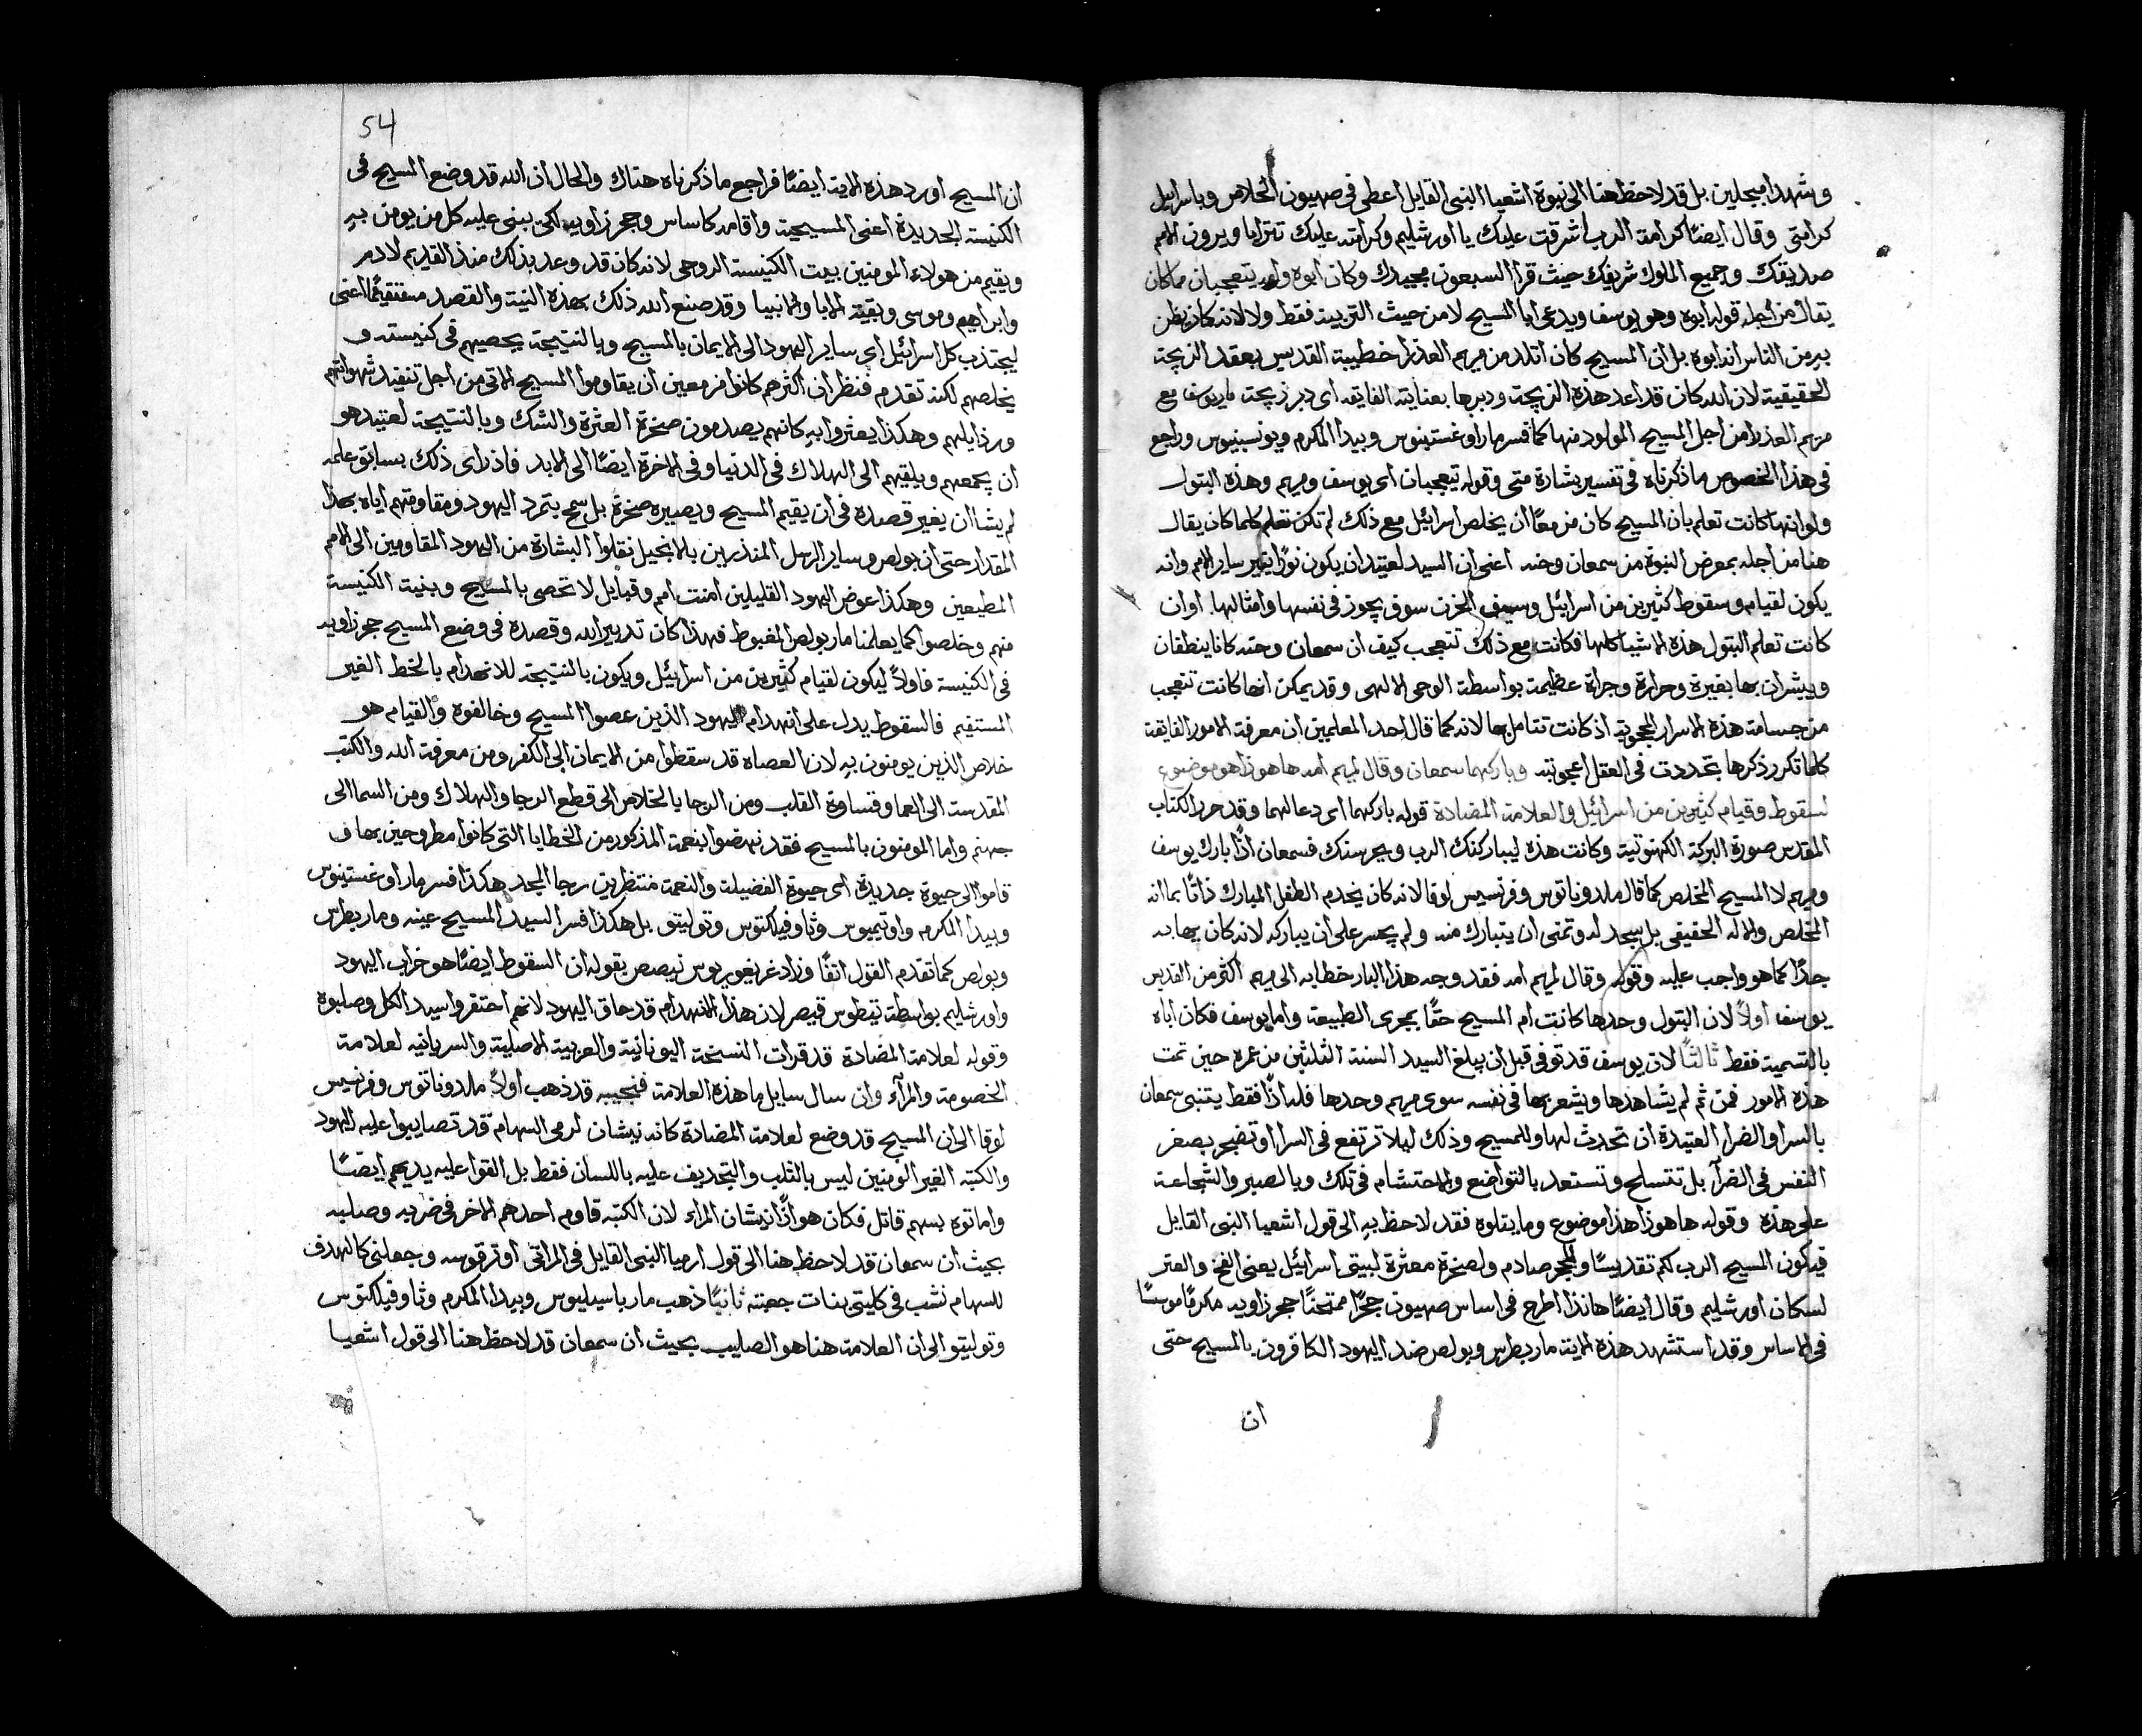 وشهدا مبجلين بل قد لاحظ هنا الى نبوة اشعيا النبى القايل اعطى فى صهيون الخلاص وباسراييل
كرامتى وقال ايضًا كرامة الرب اشرقت عليك يا اورشليم وكرامته عليك تترايا ويرون الامم
صديقك وجميع الملوك شريفك حيث قرا السبعون مجيدك وكان ابوه وامه يتعجبان مما كان
يقال من اجله قوله ابوه وهو يوسف ويدعى ابا المسيح لا من حيث التربية فقط ولا لانه كان يظن
به من الناس انه ابوه بل ان المسيح كان اتلد من مريم العذرا خطيبة القديس بعقد الزيجة
الحقيقية لان الله كان قد اعد هذه الزيجة ودبرها بعنايته الفايقه اى دبر زيجة مار يوسف مع
مريم العذرا من اجل المسيح المولود منها كما فسر مار اوغستينوس وبيدا المكرم ويونسينيوس وراجع
فى هذا الخصوص ما ذكرناه فى تفسير بشارة متى وقوله يتعجبان اى يوسف ومريم وهذه البتول
ولو انها كانت تعلم بان المسيح كان مزمعًا ان يخلص اسرائيل مع ذلك لم تكن تعلم كلما كان يقال
هنا من اجله بمعرض النبوة من سمعان وحنه اعنى ان السيد لعتيد ان يكون نورًا ينير ساير الامم وانه
يكون لقيام وسقوط كثيرين من اسرائيل وسيف الحزن سوف يجوز فى نفسها وامثالها او ان
كانت تعلم البتول هذه الاشيا كلها فكانت مع ذلك تتعجب كيف ان سمعان وحنه كانا ينطقان
ويبشران بها بغيرة وحرارة وجراة عظيمة بواسطة الوحى الالهى وقد يمكن انها كانت تتعجب
من جسامة هذه الاسرار العجوبية اذ كانت تتامل بها لانه كما قال احد المعلمين ان معرفة الامور الفايقة
كلما تكرر ذكرها تجددت فى العقل اعجوبته وباركهما سمعان وقال لمريم امه ها هوذا هو موضوع
لسقوط وقيام كثيرين من اسرائيل ولعلامة المضادة قوله باركهما اى دعا لهما وقد حرر الكتاب
المقدس صورة البركة الكهنوتية وكانت هذه ليباركك الرب ويحرسك فسمعان اذًا بارك يوسف
ومريم لا المسيح المخلص كما قال ملدوناتوس وفرنسيس لوقا لانه كان يخدم الطفل المبارك ذاتًا بما انه
المخلص والاله الحقيقى بل سجد له وتمنى ان يتبارك منه ولم يجسر على ان يباركه لانه كان يهابه
جدًا كما هو واجب عليه وقوله وقال لمريم امه فقد وجه هذا البار خطابه الى مريم اكثر من القديس
يوسف اولًا لان البتول وحدها كانت ام المسيح حقًا بمجرى الطبيعة واما يوسف فكان اباه
بالتسمية فقط ثالثًا لان يوسف قد توفى قبل ان يبلغ السيد السنة الثلثين من عمره حين تمت
هذه الامور فمن ثم لم يشاهدها ويشعر بها فى نفسه سوى مريم وحدها فلهاذًا فقط يتنبى سمعان
بالسرا والضرا العتيدة ان تحدث لها وللمسيح وذلك ليلا ترتفع فى السرا او تضجر بصغر
النفس فى الضرآ بل تتسلح وتستعد بالتواضع والاحتشام فى تلك وبالصبر والشجاعة
على هذه وقوله ها هوذا هذا موضوع وما يتلوه فقد لاحظ به الى قول اشعيا النبى القايل
فيكون المسيح الرب لكم تقديسًا ولحجر صادم ولصخرة معثرة لبيتى اسرائيل يعنى الفخ والعثر
لسكان اورشليم وقال ايضًا هانذا اطرح فى اساس صهيون حجرًا ممتحنًا حجر زاويه مكرمًا موسسًا
فى الاساس وقد استشهد هذه الاية مار بطرس وبولص ضد اليهود الكافرون بالمسيح حتى
ان
54
ان المسيح اورد هذه الاية ايضًا فراجع ما ذكرناه هناك والحال ان الله قد وضع المسيح فى
الكنيسة الجديدة اعنى المسيحية واقامه كاساس وحجر زاويه لكى يبنى عليه كل من يومن بهِ
ويقيم من هولاء المومنين بيت الكنيسة الروحى لانه كان قد وعد بذلك منذ القديم لادم
وابراهيم وموسى وبقية الابا والانبيا وقد صنع الله ذلك بهذه النية والقصد مستقيمًا اعنى
ليجتذب كل اسرائيل اى ساير اليهود الى الايمان بالمسيح وبالنتيجة يحصيهم فى كنيسته و
يخلصهم لكنه تقدم فنظر ان اكثرهم كانوا مزمعين ان يقاوموا المسيح الاتى من اجل تنفيذ شهواتهم
ورذايلهم وهكذا يعثروا بهِ كانهم يصدمون صخرة العثرة والشك وبالنتيجة لعتيد هو
ان يجمعهم ويلقيهم الى الهلاك فى الدنيا وفى الاخرة ايضًا الى الابد فاذ راى ذلك بسابق علمه
لم يشا ان يغير قصده فى ان يقيم المسيح ويصيره صخرة بل سمح بتمرد اليهود ومقاومتهم اياه بهذا
المقدار حتى ان بولص وساير الرسل المنذرين بالانجيل نقلوا البشارة من اليهود المقاومين الى الامم
المطيعين وهكذا عوض اليهود القليلين امنت امم وقبايل لا تحصى بالمسيح وبنيت الكنيسة
منهم وخلصوا كما يعلمنا مار بولص المغبوط فهذا كان تدبير الله وقصده فى وضع المسيح حجر زاويه
فى الكنيسة فاولًا ليكون لقيام كثيرين من اسرائيل ويكون بالنتيجة للانهدام بالخط الغير
المستقيم فالسقوط يدل على انهدام اليهود الذين عصوا المسيح وخالفوه والقيام هو
خلاص الذين يومنون بهِ لان العصاه قد سقطوا من الايمان الى الكفر ومن معرفة الله والكتب
المقدسة الى العما وقساوة القلب ومن الرجا بالخلاص الى قطع الرجا والهلاك ومن السما الى
جهنم واما المومنون بالمسيح فقد نهضوا بنعمة المذكور من الخطايا التى كانوا مطروحين بها ف
قاموا الى حيوة جديدة اى حيوة الفضيلة والنعمة منتظرين رجا المجد هكذا فسر مار اوغستينوس
وبيدا المكرم واوتيميوس وثاوفيلكتوس وتوليتو بل هكذا فسرا السيد المسيح عينه ومار بطرس
وبولص كما تقدم القول انفًا وزاد غريغوريوس نيصص بقوله ان السقوط ايضًا هو خراب اليهود
واورشليم بواسطة تيطوس قيصر لان هذا الانهدام قد حاق اليهود لانهم احتقروا سيد الكل وصلبوه
وقوله لعلامة المضادة قد قرات النسخة اليونانية والعربية الاصلية والسريانيه لعلامة
الخصومة والمرآء وان سال سايل ما هذه العلامة فنجيبه قد ذهب اولًا ملدوناتوس وفرنسيس
لوقا الى ان المسيح قد وضع لعلامة المضادة كانه نيشان لرمى السهام قد تصايبوا عليه اليهود
والكتبه الغير المومنين ليس بالثلب والتجديف عليه باللسان فقط بل القوا عليه يديهم ايضًا
واماتوه بسهم قاتل فكان هو اذًا نيشان المراء لان الكتبه قاوم احدهم الاخر فى ضربه وصلبه
بحيث ان سمعان قد لاحظ هنا الى قول ارميا النبى القايل فى المراثى اوتر قوسه وجعلنى كالهدف
للسهام نشب فى كليتى بنات جعبته ثانيًا ذهب مار باسيليوس وبيدا المكرم وثاوفيلكتوس
وتوليتو الى ان العلامة هنا هو الصليب بحيث ان سمعان قد لاحظ هنا الى قول اشعيا